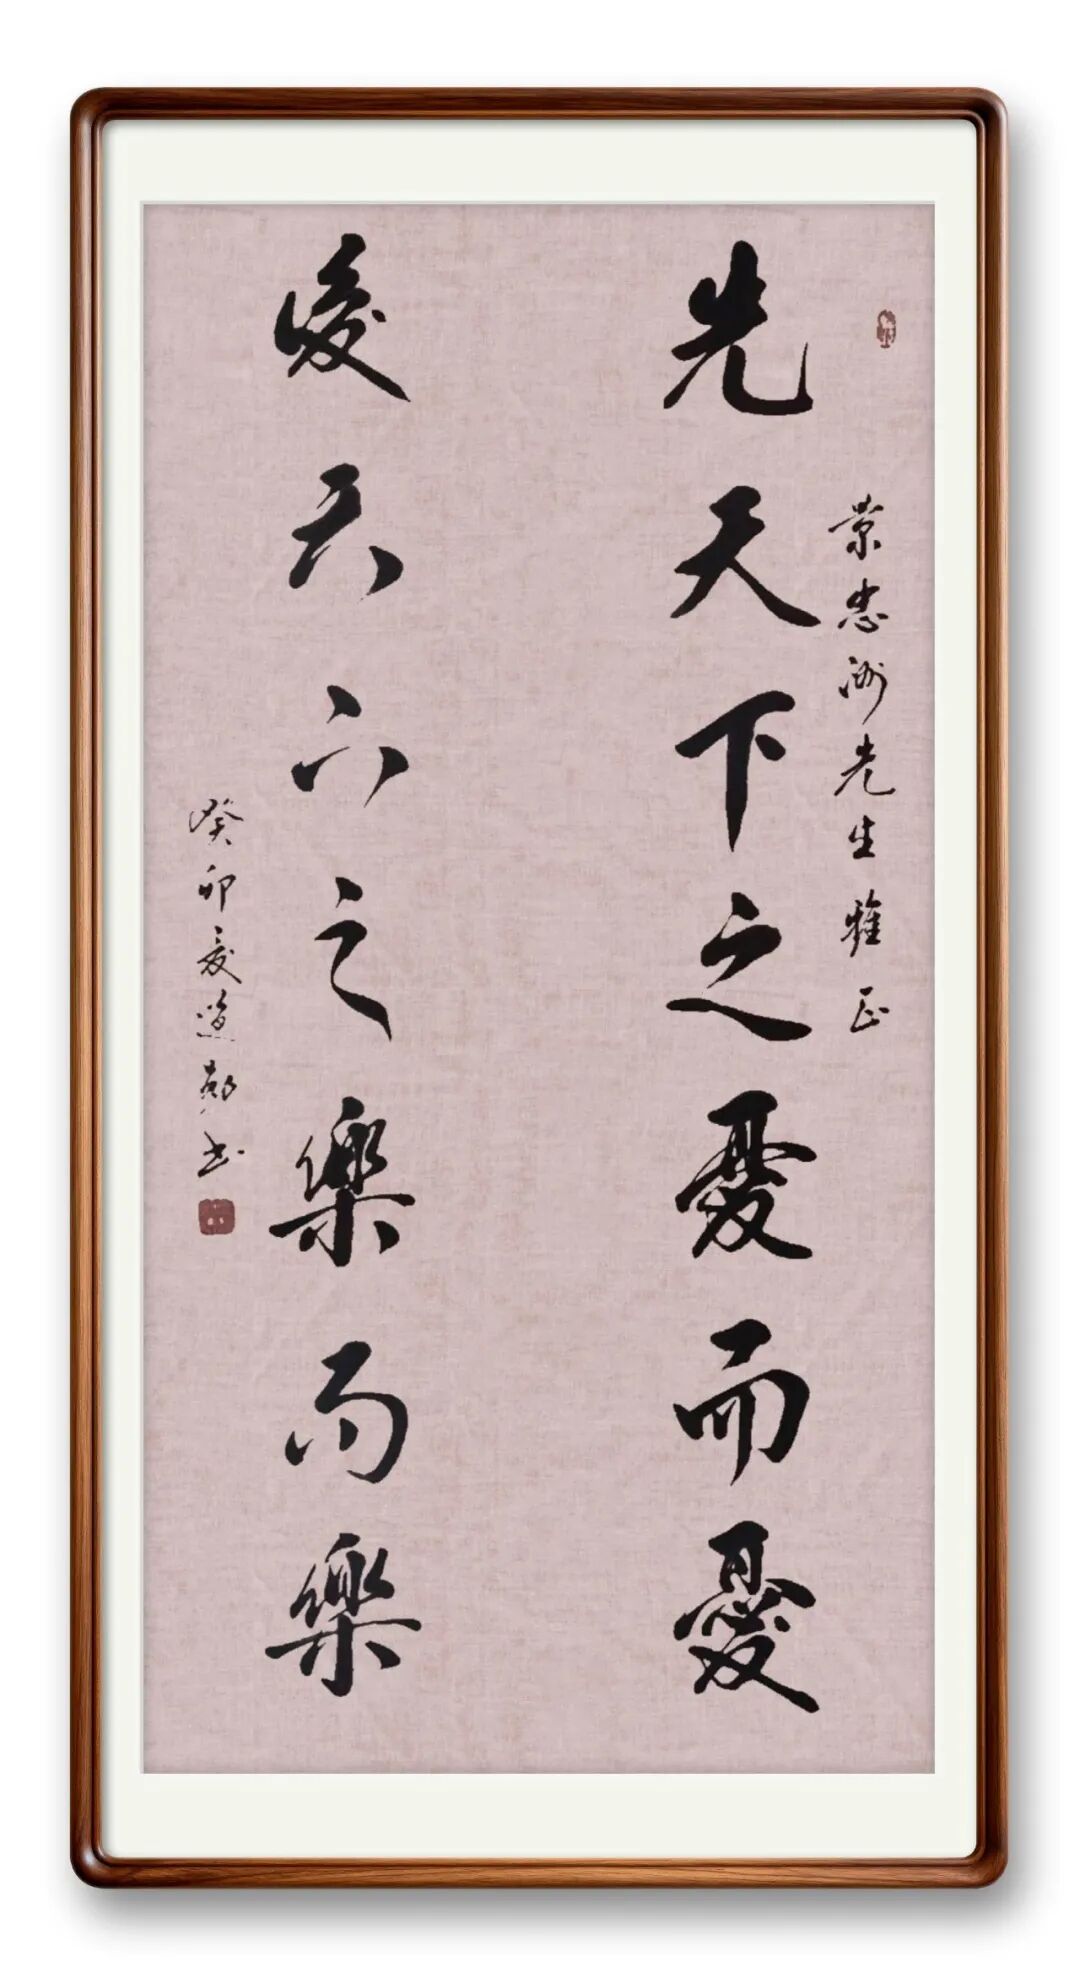 先天下之憂而憂
景忠洲先生雅正
後天下之樂而樂
癸卯夏 書